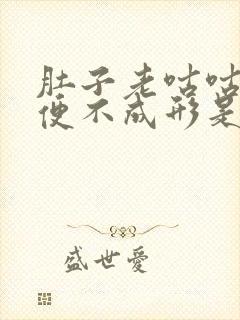 肚子老咕咕
便不成形是
盛世爱